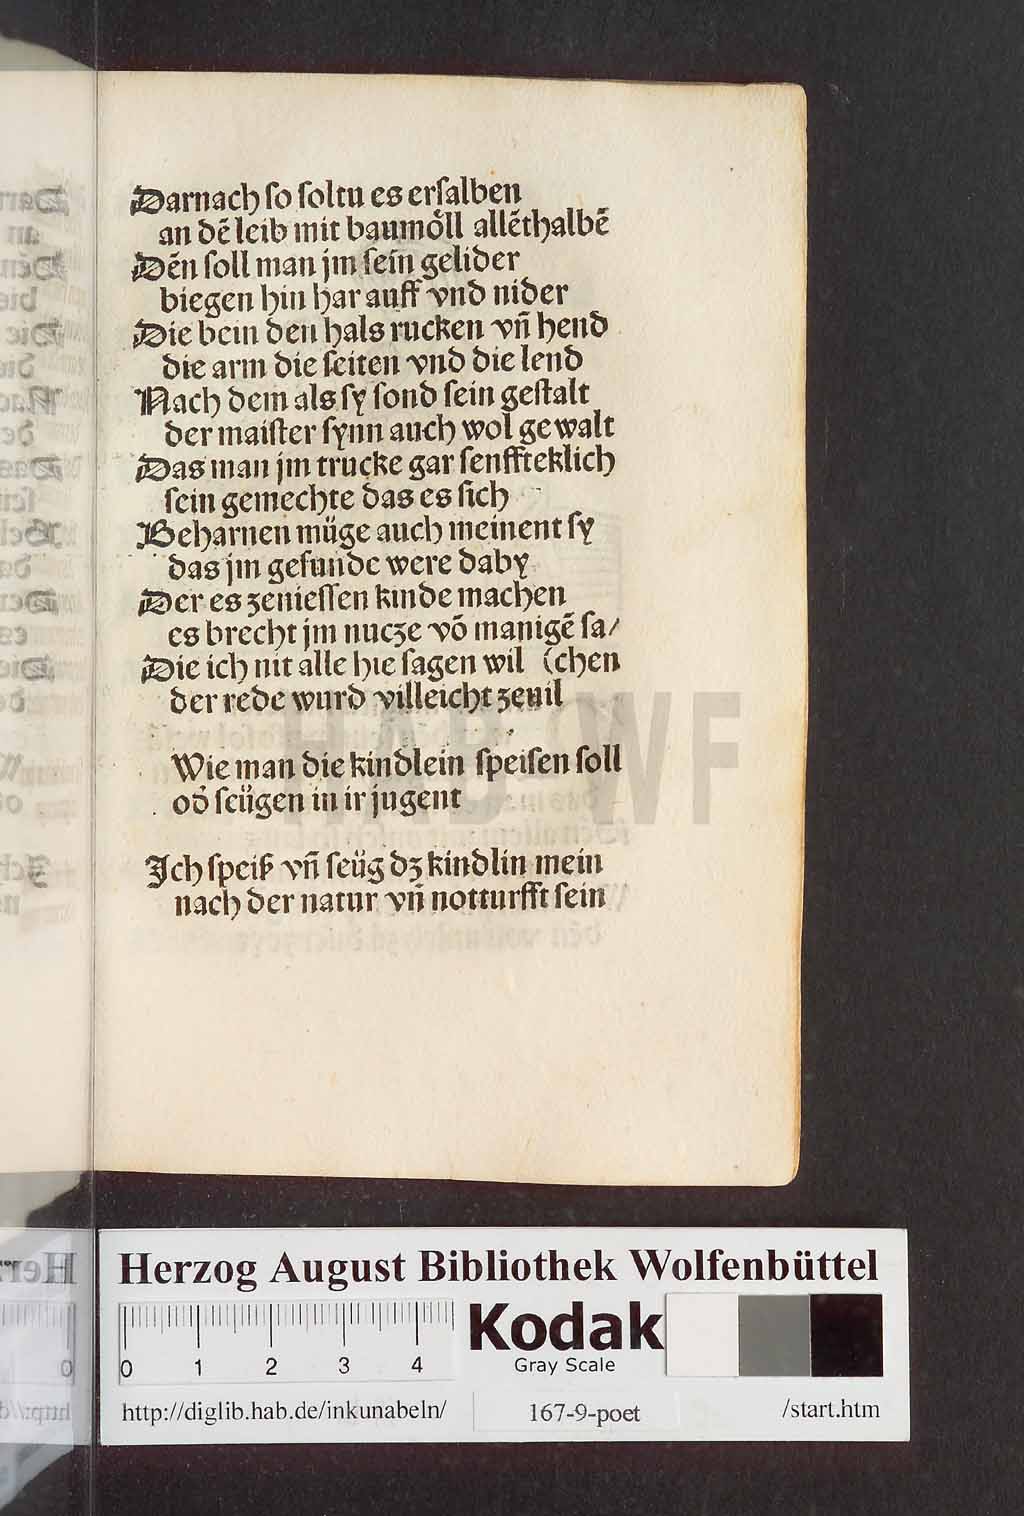 Darnach ſo ſoltu es erſalben
an dẽ leib mit baumoͤll allẽthalbẽ
Dẽn ſoll man jm ſein gelider
biegen hin har auff vnd nider
Die bein den hals rucken vñ hend
die arm die ſeiten vnd die lend
Nach dem als ſy ſond ſein geſtalt
der maiſter ſynn auch wol gewalt
Das man jm trucke gar ſenffteklich
ſein gemechte das es ſich
Beharnen müge auch meinent ſy
das jm geſunde were daby
Der es zenieſſen kinde machen
es brecht jm nucze võ manigẽ ſa/
Die ich nit alle hie ſagen wil (chen
der rede wurd villeicht zeuil
Wie man die kindlein ſpeiſen ſoll
od̾ ſeügen in ir jugent
Ich ſpeiß vñ ſeüg dz kindlin mein
nach der natur vñ notturfft ſein
HAB WF
Herzog August Bibliothek Wolfenbüttel
0 1 2 3 4
Kodak
Gray Scale
http://diglib.hab.de/inkunabeln/ 167-9-poet /start.htm